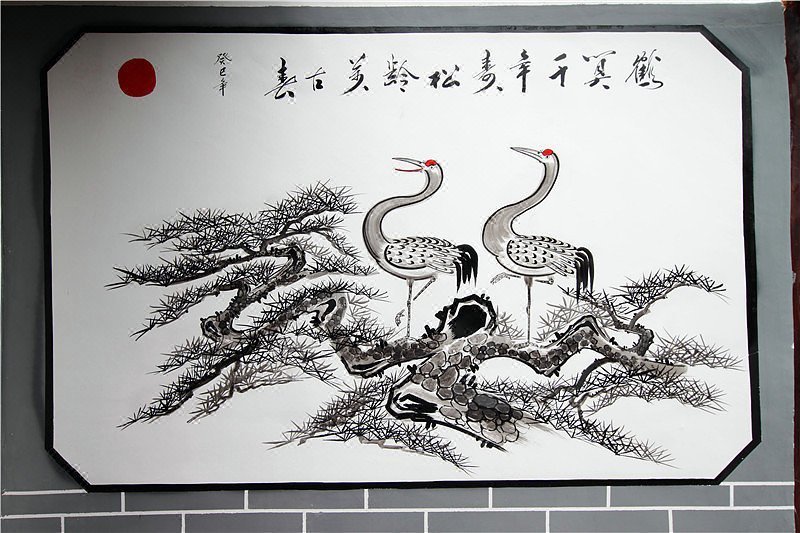 鹤算千年寿松龄万古春
癸巳年